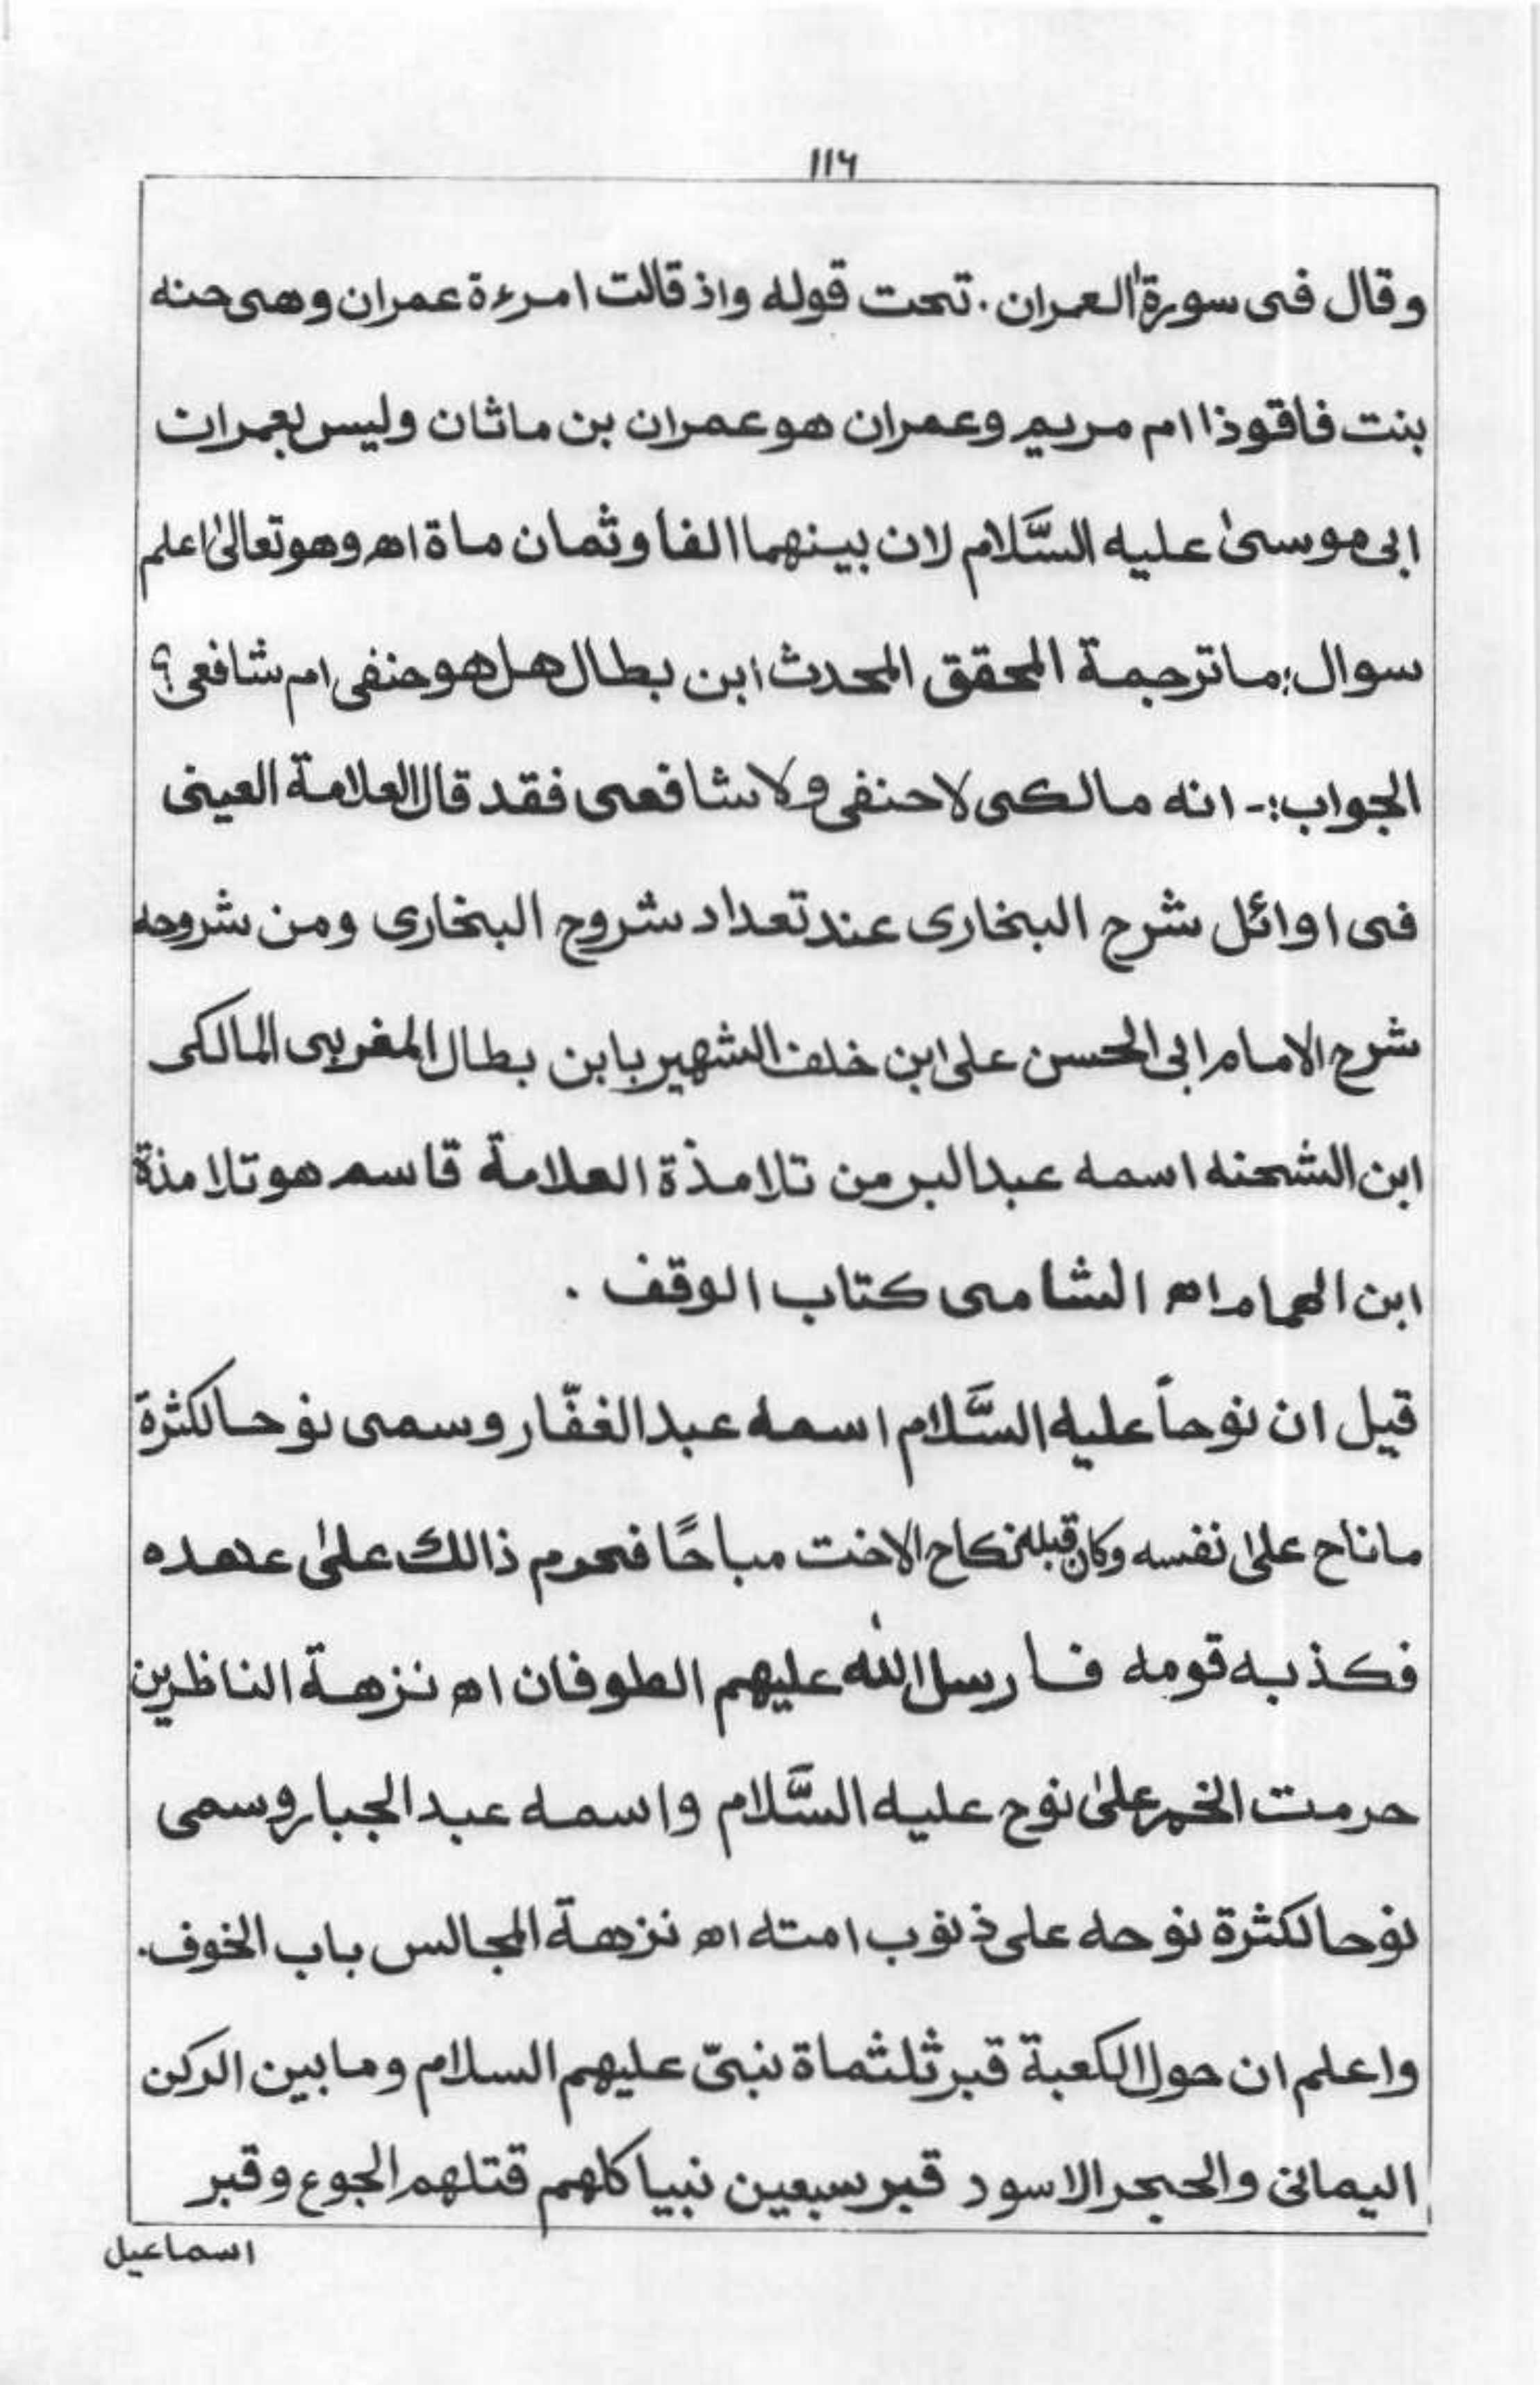 ١١٦
وقال فى سورة اٰل عمران . تحت قوله واذ قالت امرءة عمران وهى حنه
بنت فاقوذا ام مريم وعمران هو عمران بن ماثان وليس بعمران
ابى موسىٰ عليه السَّلام لان بينهما الفا وثمان ماة اھ وهو تعالىٰ اعلم
سوال: ما ترجمة المحقق المحدث ابن بطال هل هو حنفى ام شافعى؟
الجواب:- انه مالكى لا حنفى ولا شافعى فقد قال العلامة العينى
فى اوائل شرح البخارى عند تعداد شروح البخارى ومن شروحه
شرح الامام ابى الحسن على ابن خلف الشهير بابن بطال المغربى المالكى
ابن الشحنه اسمه عبد البر من تلامذة العلامة قاسم هو تلامذة
ابن الهمام اھ الشامى كتاب الوقف .
قيل ان نوحاً عليه السَّلام اسمه عبد الغفّار وسمى نوحا لكثرة
ما ناح علىٰ نفسه وكان قبله نكاح الاخت مباحًا فحرم ذالك علىٰ عهده
فكذبه قومه فارسل الله عليهم الطوفان اھ نزهة الناظرين
حرمت الخمر علىٰ نوح عليه السَّلام واسمه عبد الجبار وسمى
نوحا لكثرة نوحه على ذنوب امته اھ نزهة المجالس باب الخوف.
واعلم ان حول الكعبة قبر ثلثماة نبىّ عليهم السلام وما بين الركن
اليمانى والحجر الاسود قبر سبعين نبيا كلهم قتلهم الجوع وقبر
اسماعيل